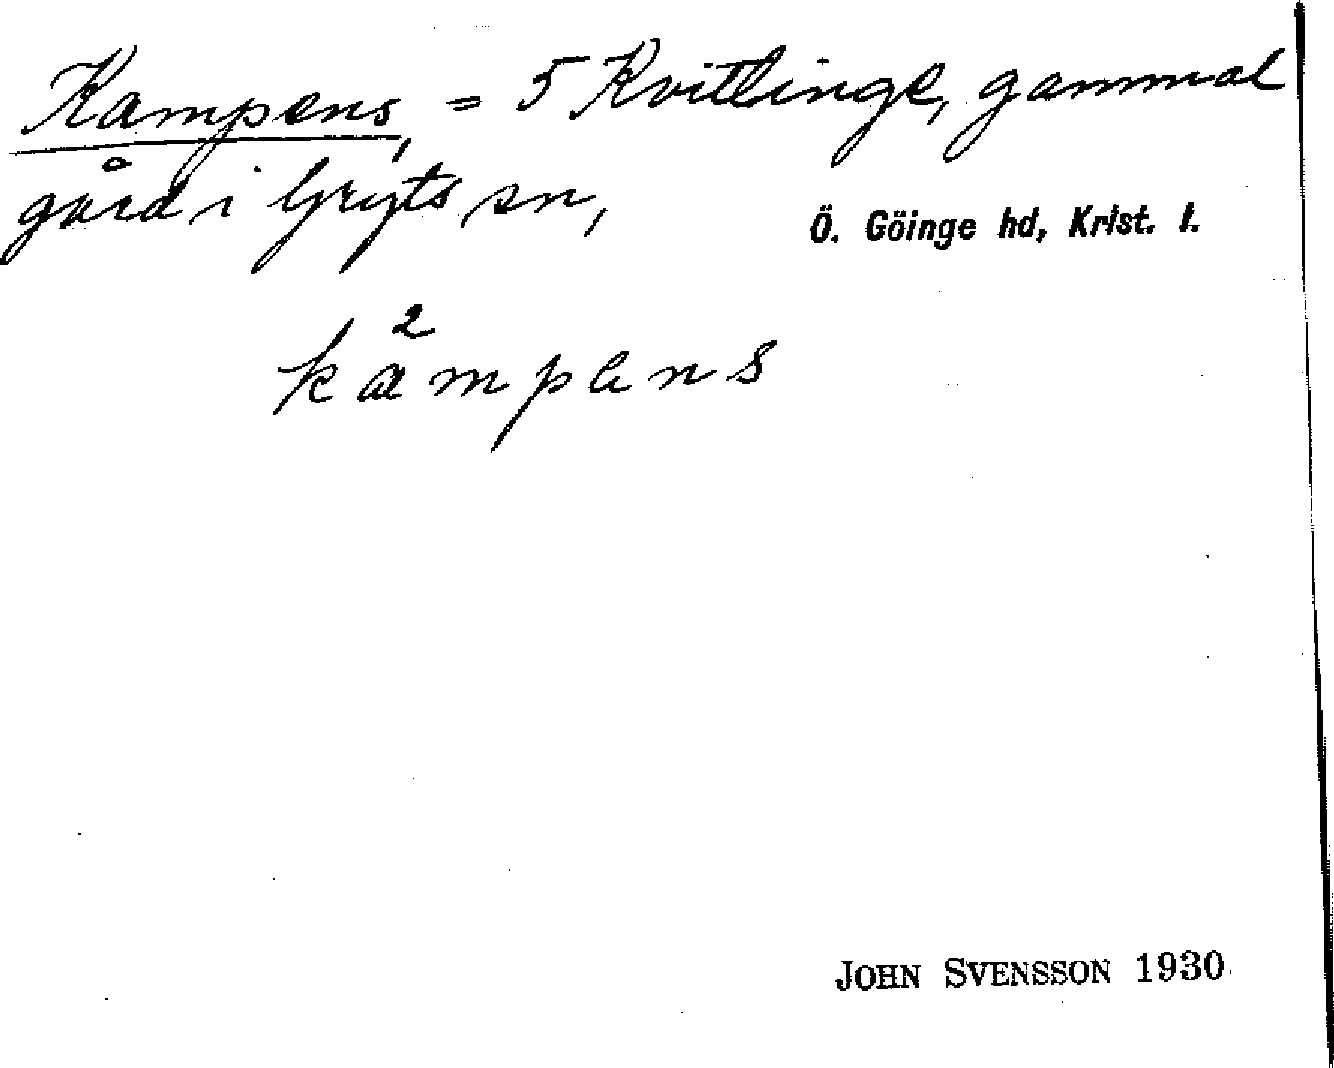 Kampens, = 5 Kvitlinge, gammal
gård i Gryts sn, Ö. Göinge hd, Krist. l.
2
kampens
JOHN SVENSSON 1930